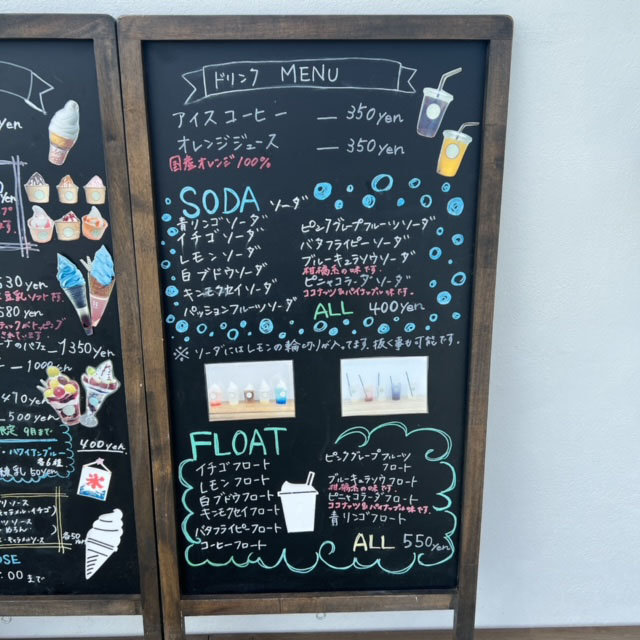 ドリンク MENU
アイスコーヒー — 350yen
オレンジジュース — 350yen
国産オレンジ100%
SODA ソーダ
青リンゴソーダ
イチゴソーダ
レモンソーダ
白ブドウソーダ
キンモクセイソーダ
パッションフルーツソーダ
ピンクグレープフルーツソーダ
バタフライピーソーダ
ブルーキュラソウソーダ
柑橘系の味です。
ピニャコラーダソーダ
ココナッツ&パイナップル味です。
ALL 400yen
※ソーダにはレモンの輪切りが入ってます。抜く事も可能です。
FLOAT
イチゴフロート
レモンフロート
白ブドウフロート
キンモクセイフロート
バタフライピーフロート
コーヒーフロート
ピンクグレープフルーツ
フロート
ブルーキュラソウフロート
柑橘系の味です。
ピニャコラーダフロート
ココナッツ&パイナップル味です。
青リンゴフロート
ALL 550yen
yen
530yen
豆乳ソフトです。
580yen
1350yen
100yen
470yen
500yen
限定 9月まで
ハワイアンブルー
各6種
練乳 50yen
400yen
氷
各50yen
:00まで